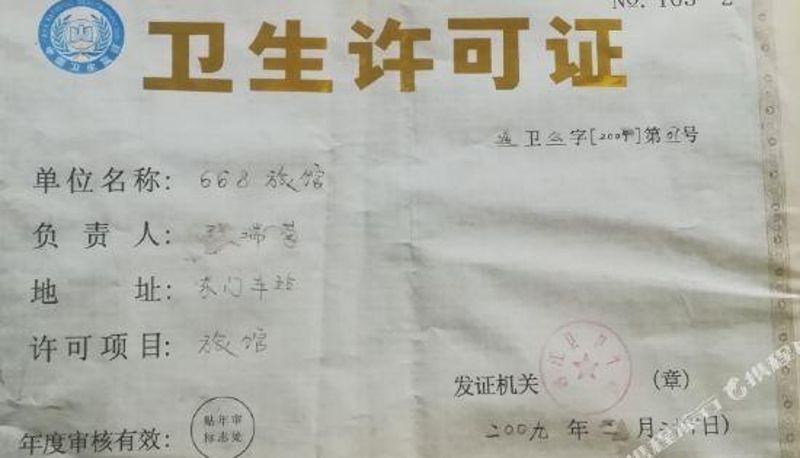 卫生许可证
卫公字[200]第 号
单位名称: 668旅馆
负责人: 瑞
地址: 东门车站
许可项目: 旅馆
发证机关 (章)
年度审核有效:
贴年审
标志处
二00九年 月 日)
携程